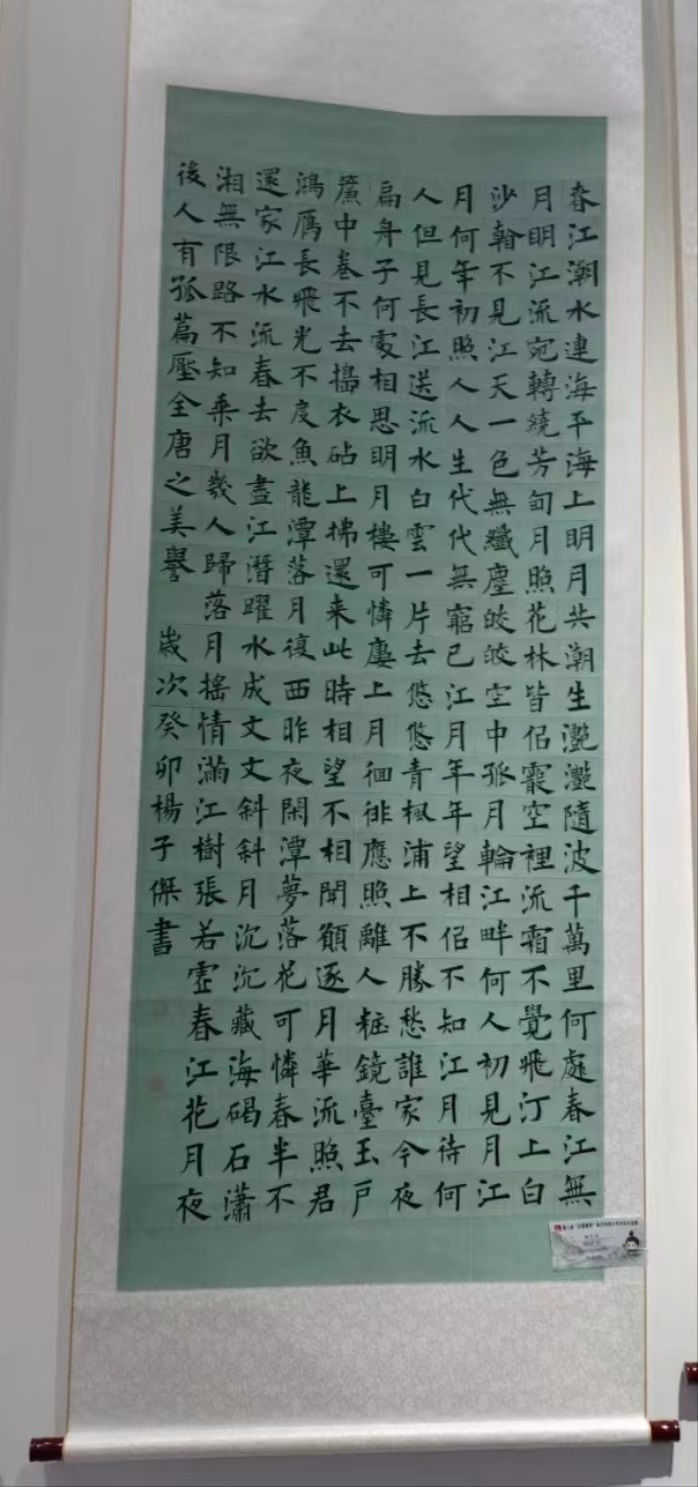 春江潮水連海平海上明月共潮生灔灔隨波千萬里何處春江無
月明江流宛轉繞芳甸月照花林皆侣霰空裡流霜不覺飛汀上白
沙翰不見江天一色無纖塵皎皎空中孤月輪江畔何人初見月江
月何年初照人人生代代無窮已江月年年望相侣不知江月待何
人但見長江送流水白雲一片去悠悠青楓浦上不勝愁誰家今夜
扁舟子何處相思明月樓可憐廔上月徊徘應照離人粧鏡臺玉戶
簾中卷不去擣衣砧上拂還来此時相望不相聞願逐月華流照君
鴻雁長飛光不度魚龍潭落月復西昨夜閑潭夢落花可憐春半不
還家江水流春去欲盡江潛曜水成文文斜斜月沉沉藏海碣石瀟
湘無限路不知乘月幾人歸落月搖情滿江樹張若虛春江花月夜
後人有孤篇壓全唐之美譽 歲次癸卯楊子傑書